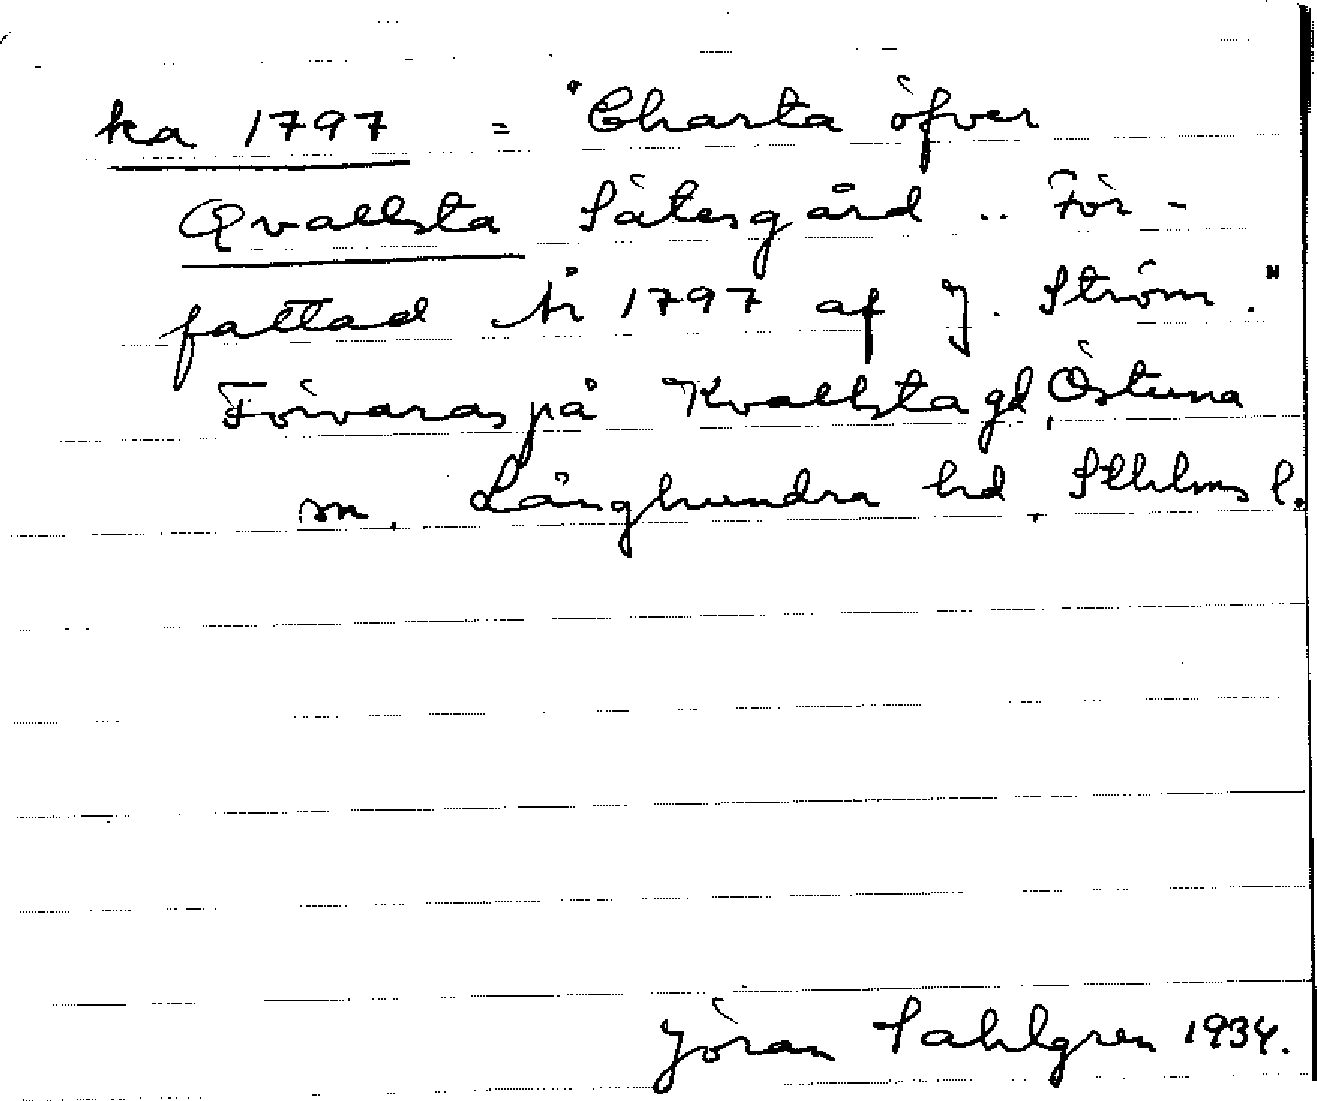 ka 1797 = "Charta öfver
Qvallsta Sätesgård .. För-
fattad År 1797 af J. Ström."
Förvaras på Kvallsta gd, Östuna
sn, Långhundra hd, Sthlms l.
Jöran Sahlgren 1934.